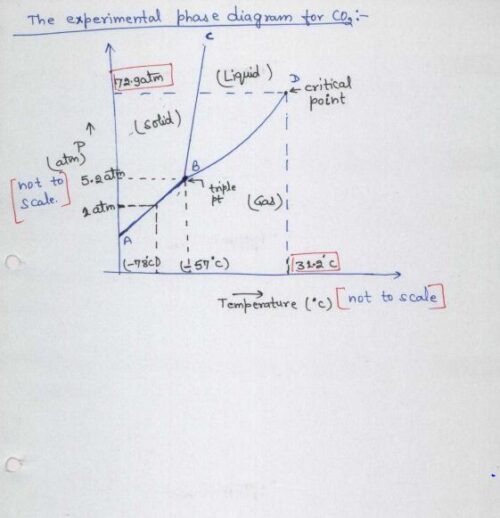 The experimental phase diagram for CO₂:-
C
72.9atm
(Liquid)
D
critical
point
(solid)
P
(atm)
B
5.2atm
[not to
scale.]
triple
pt
(Gas)
1 atm
A
(-78°C)
(-57°C)
31.2°C
Temperature (°C) [not to scale]